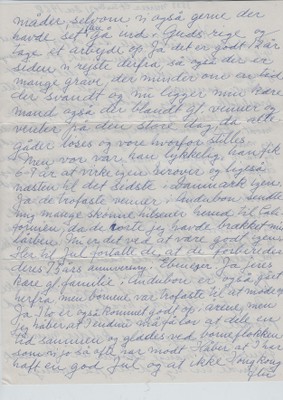 måder, selvom vi også gerne der
havde set ham gå ind i Guds rige og
tage et arbejde op. Ja det er godt 12 år
siden vi rejste derfra så også der er
mange grave, der minder one en tid
der svandt og nu ligger min kære
mand også der blandt gl venner og
venter på den store dag, da alle
gåder løses og vore hvorfor stilles.
Men vor var han lykkelig, han fik
6-7 år at virke igen herover og ligeså
næsten til det sidste i Danmark igen.
Ja de trofaste venner i Audubon sendte
mig mange skønne hilsener hened til Cali
fornien, da de hørte jeg havde brækket min
hofteben. Nu er det ved at være godt igen.
Her til Jul fortalte de, at de forberedes
deres 75års anniversary. Ebenezer. Ja Jens
kære gl familie i Audubon er også gået
herfra men børnene var trofaste til at møde op.
Ja I to er også kommet godt op i årene, men
jeg håber at I endnu må få lov at dele en
tid sammen og glædes ved børneflokken
som vi jo så ofte har mødt. Håber at I har
haft en god Jul og at ikke Hongkong